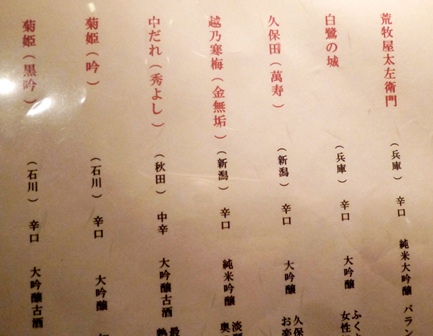 荒牧屋太左衛門 （兵庫） 辛口 純米大吟醸 バラン
白鷺の城 （兵庫） 辛口 大吟醸 ふく 女性
久保田（萬寿） （新潟） 辛口 大吟醸 久保 お楽
越乃寒梅（金無垢） （新潟） 辛口 純米吟醸 淡 奥
中だれ（秀よし） （秋田） 中辛 大吟醸古酒 最
菊姫（吟） （石川） 辛口 大吟醸
菊姫（黒吟） （石川） 辛口 大吟醸古酒